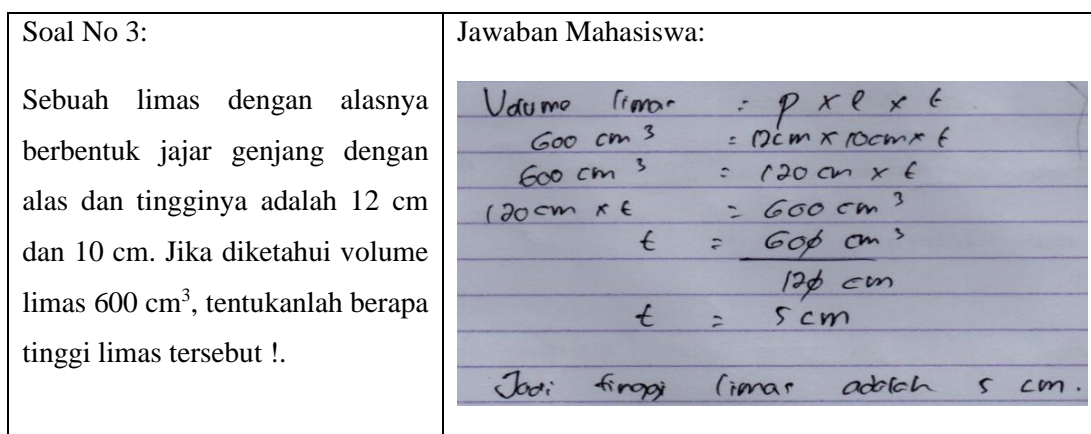 Soal No 3:
Sebuah limas dengan alasnya
berbentuk jajar genjang dengan
alas dan tingginya adalah 12 cm
dan 10 cm. Jika diketahui volume
limas 600 cm³, tentukanlah berapa
tinggi limas tersebut !.
Jawaban Mahasiswa:
Volume limas : p x l x t
600 cm ³ = 12cm x 10cm x t
600 cm ³ = 120 cm x t
120 cm x t = 600 cm ³
t = 600 cm ³
120 cm
t = 5 cm
Jadi tinggi limas adalah 5 cm.